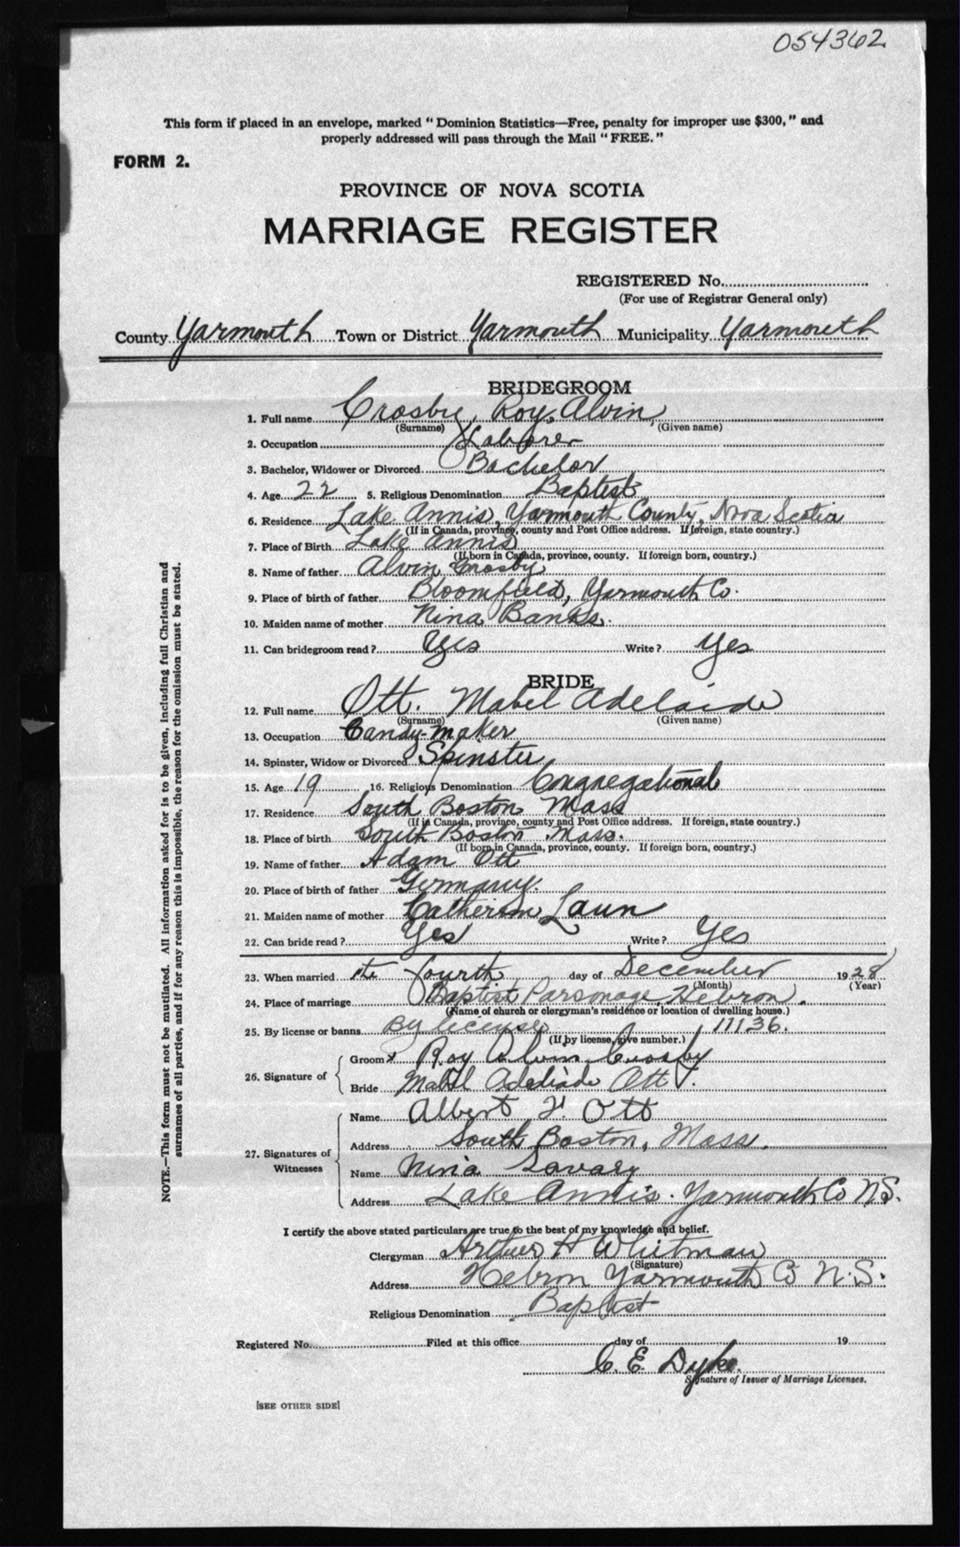 054362
This form if placed in an envelope, marked "Dominion Statistics—Free, penalty for improper use $300," and
properly addressed will pass through the Mail "FREE."
FORM 2.
PROVINCE OF NOVA SCOTIA
MARRIAGE REGISTER
REGISTERED No.
(For use of Registrar General only)
County Yarmouth Town or District Yarmouth Municipality Yarmouth
BRIDEGROOM
1. Full name Crosby, Roy Alvin
(Surname) (Given name)
2. Occupation Laborer
3. Bachelor, Widower or Divorced Bachelor
4. Age 22 5. Religious Denomination Baptist
6. Residence Lake Annis, Yarmouth County, Nova Scotia
(If in Canada, province, county and Post Office address. If foreign, state country.)
7. Place of Birth Lake Annis
(If born in Canada, province, county. If foreign born, country.)
8. Name of father Alvin Crosby
9. Place of birth of father Bloomfield, Yarmouth Co.
10. Maiden name of mother Nina Banks.
11. Can bridegroom read? Yes Write? Yes
BRIDE
12. Full name Ott. Mabel Adelaide
(Surname) (Given name)
13. Occupation Candy-maker
14. Spinster, Widow or Divorced Spinster
15. Age 19 16. Religious Denomination Congregational
17. Residence South Boston Mass
(If in Canada, province, county and Post Office address. If foreign, state country.)
18. Place of birth South Boston Mass.
(If born in Canada, province, county. If foreign born, country.)
19. Name of father Adam Ott
20. Place of birth of father Germany.
21. Maiden name of mother Catherine Laun
22. Can bride read? Yes Write? Yes
23. When married the fourth day of December 1928
(Month) (Year)
24. Place of marriage Baptist Parsonage, Hebron.
(Name of church or clergyman's residence or location of dwelling house.)
25. By license or banns By license 11136.
(If by license, give number.)
26. Signature of
Groom x Roy Alvin Crosby
Bride Mabel Adeliade Ott.
27. Signatures of Witnesses
Name Albert F. Ott
Address South Boston, Mass.
Name Nina Savary
Address Lake Annis. Yarmouth Co N.S.
I certify the above stated particulars are true to the best of my knowledge and belief.
Clergyman Arthur H Whitman
(Signature)
Address Hebron Yarmouth Co N.S.
Religious Denomination Baptist
Registered No. Filed at this office day of 19
C. E. Dyke.
Signature of Issuer of Marriage Licenses.
[SEE OTHER SIDE]
NOTE.—This form must not be mutilated. All information asked for is to be given, including full Christian and
surnames of all parties, and if for any reason this is impossible, the reason for the omission must be stated.